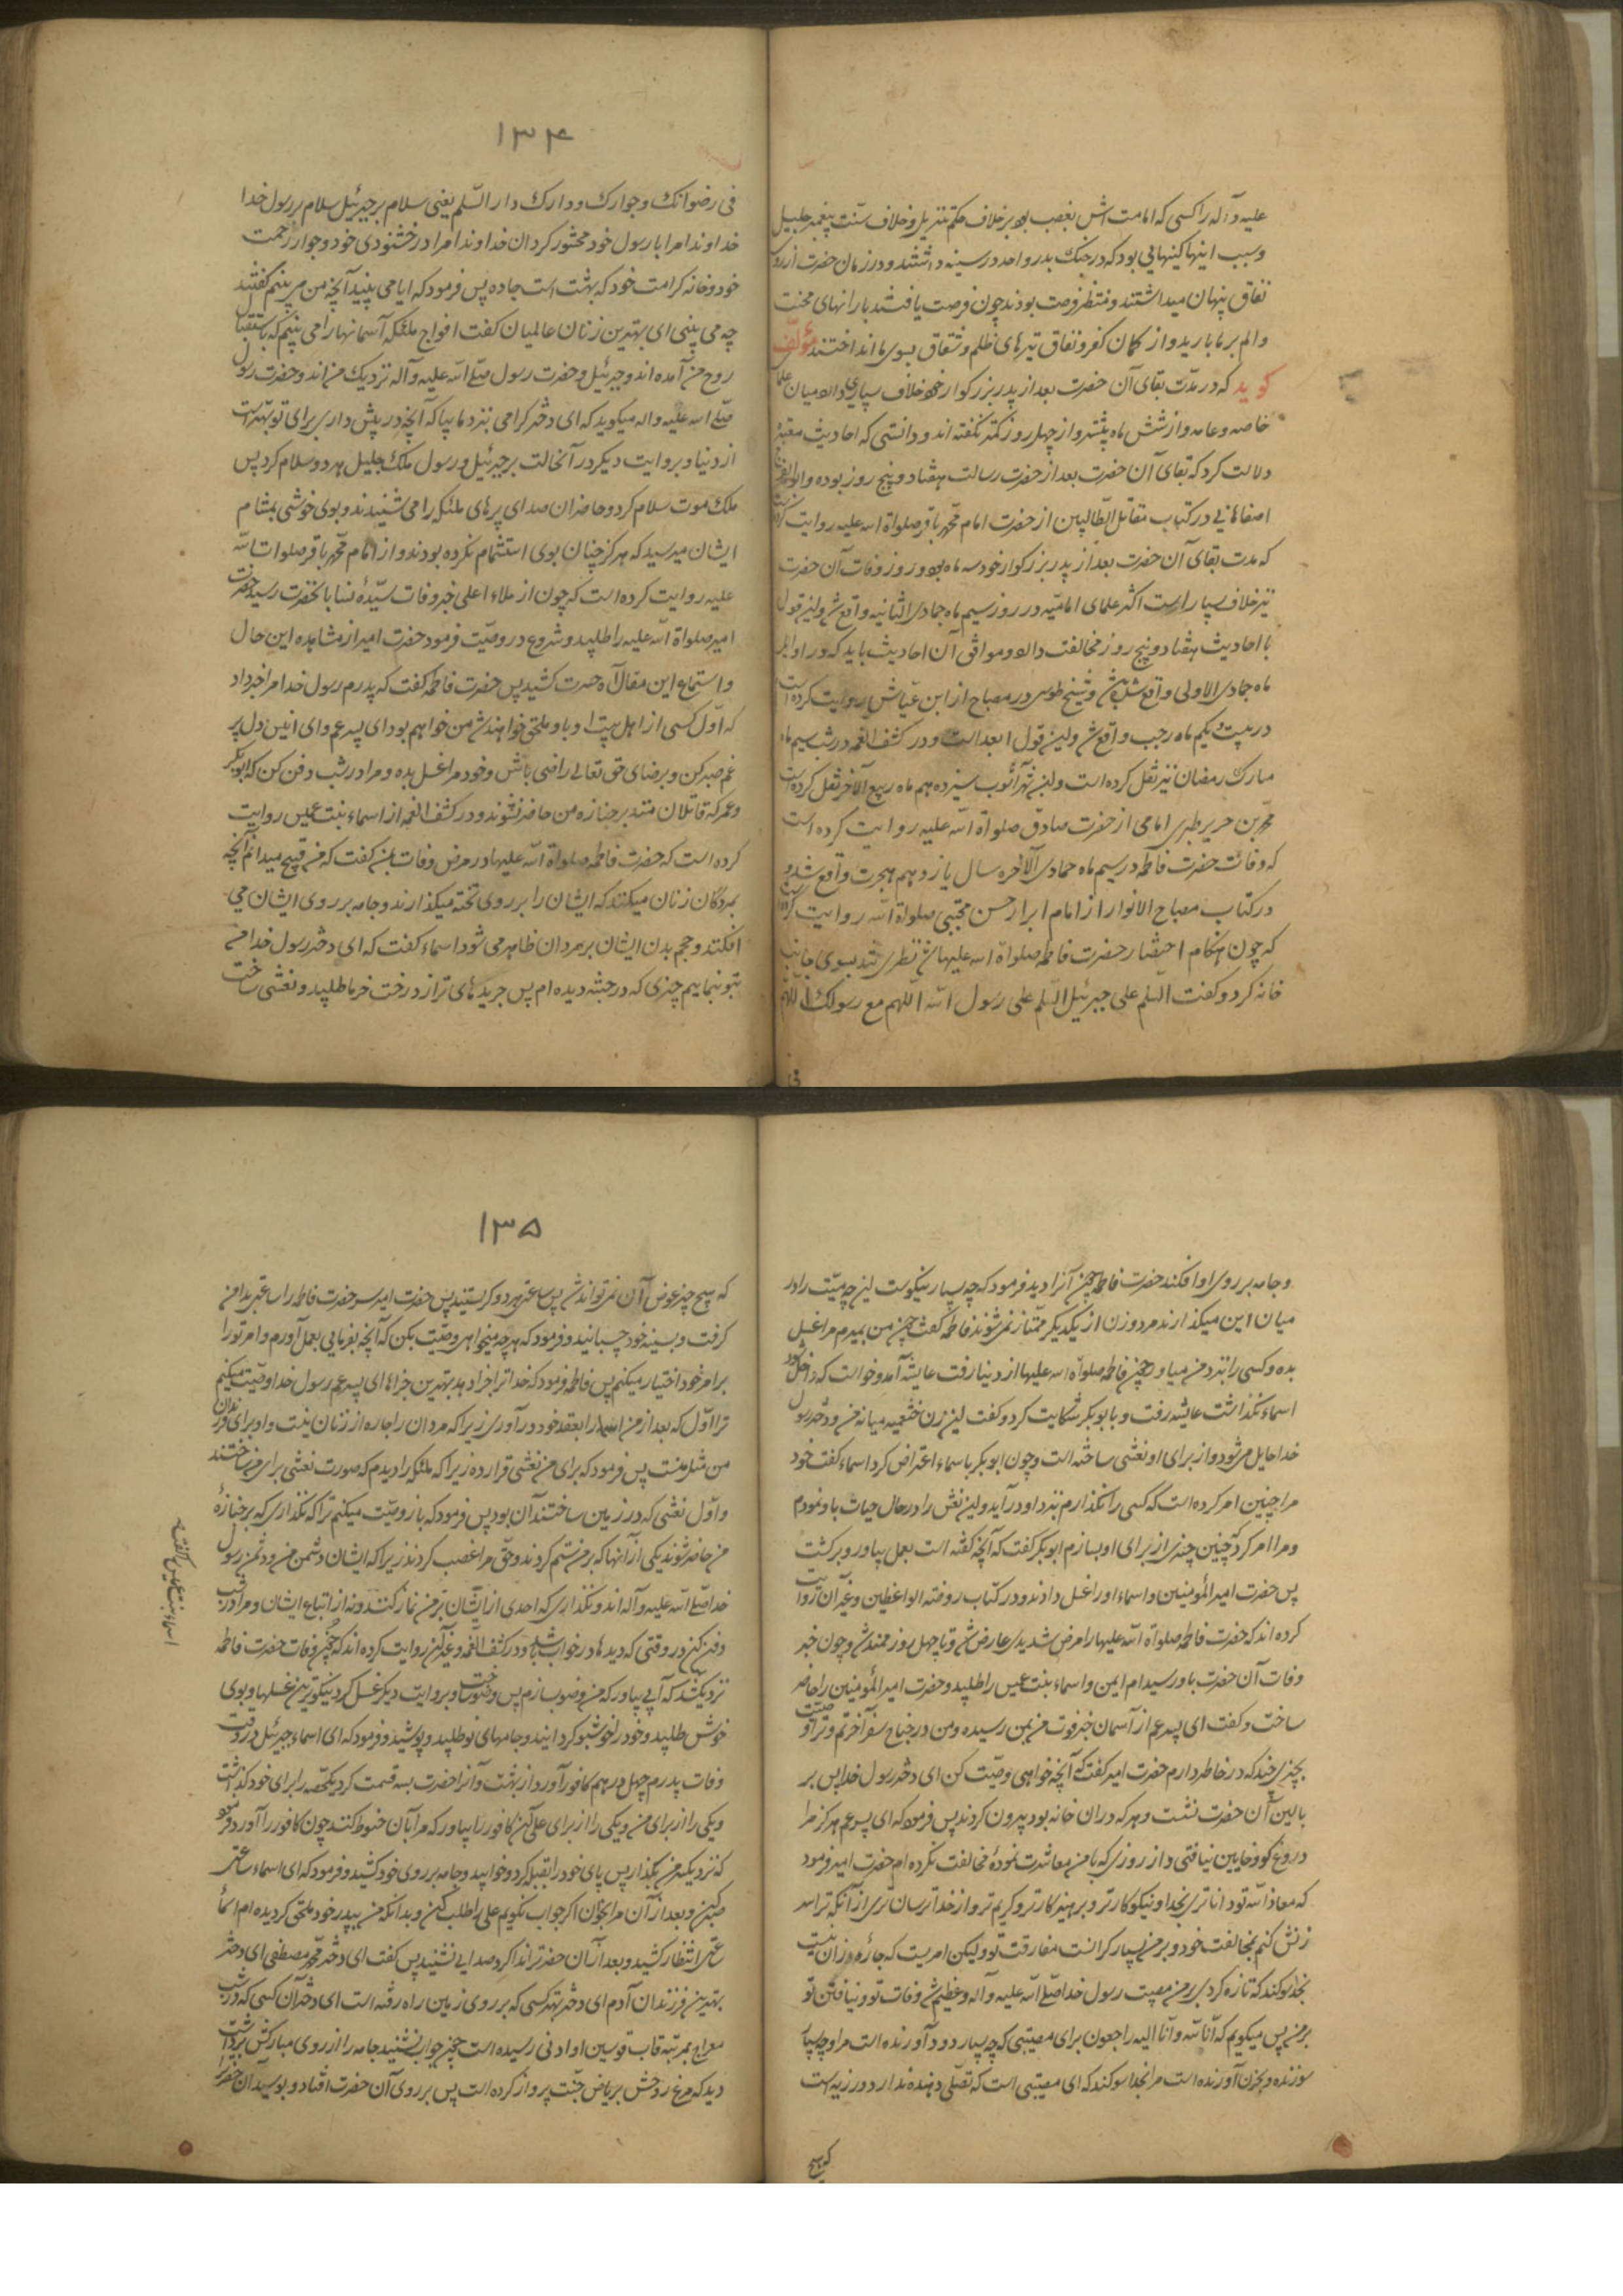 علیه و آله را کسی که امامت اش بغصب بود بر خلاف حکم تنزیل و خلاف سنت پیغمبر جلیل
و سبب اینها کینهایی بود که در جنک بدر و احد در سینه داشتند و در زمان حضرت از روی
نفاق پنهان میداشتند و منتظر فرصت بودند چون فرصت یافتند بارانهای محنت
و الم بر ما بارید و از کمان کفر و نفاق تیرهای ظلم و شقاق بسوی ما انداختند مؤلف
کوید که در مدت بقای آن حضرت بعد از پدر بزرکوار خود خلاف بسیاری واقع میان علماء
خاصه و عامه و از شش ماه بیشتر و از چهل روز کمتر نکفته اند و دانستی که احادیث معتبره
دلالت کرد که بقای آن حضرت بعد از حضرت رسالت هفتاد و پنج روز بوده و ابو الفرج
اصفاهانی در کتاب مقاتل الطالبین از حضرت امام محمد باقر صلواة الله علیه روایت کرده است
که مدت بقای آن حضرت بعد از پدر بزرکوار خود سه ماه بود و روز وفات آن حضرت
نیز خلاف بسیار است اکثر علمای امامیه در روز سیم ماه جمادی الثانیه واقع شد و این قول
با احادیث هفتاد و پنج روز مخالفت دارد و موافق آن احادیث باید که در اوایل
ماه جمادی الاولی واقع شده باشد و شیخ طوسی در مصباح از ابن عیاش روایت کرده است
در بیست و یکم ماه رجب واقع شد و این قول ابعد است و در کشف الغمه در شب سیم ماه
مبارک رمضان نیز نقل کرده است و ابن شهر آشوب سیزدهم ماه ربیع الآخر نقل کرده است
محمد بن جریر طبری امامی از حضرت صادق صلواة الله علیه روایت کرده است
که وفات حضرت فاطمه در سیم ماه جمادی الآخره سال یازدهم هجرت واقع شد و
در کتاب مصباح الانوار از امام ابرار حسن مجتبی صلواة الله روایت کرده است
که چون هنکام احتضار حضرت فاطمه صلواة الله علیها شد نظری تند بسوی جانب
خانه کرد و کفت السلم علی جبرئیل السلم علی رسول الله اللهم مع رسولک اللهم
فی
۱۳۴
فی رضوانک و جوارک و دارک دار السلم یعنی سلام بر جبرئیل سلام بر رسول خدا
خداوندا مرا با رسول خود محشور کردان خداوندا مرا در خشنودی خود و جوار رحمت
خود و خانه کرامت خود که بهشت است جا ده پس فرمود که ایا می بینید آنچه من می بینم کفتند
چه می بینی ای بهترین زنان عالمیان کفت افواج ملئکه آسمانها را می بینم که باستقبال
روح من آمده اند و جبرئیل و حضرت رسول صلی الله علیه و آله نزدیک من اند و حضرت رسول
صلی الله علیه و اله میکوید که ای دختر کرامی بنزد ما بیا که آنچه در پیش داری برای تو بهتر است
از دنیا و بروایت دیکر در آنحالت بر جبرئیل و رسول ملک جلیل هر دو سلام کرد پس
ملک موت سلام کرد و حاضران صدای پرهای ملئکه را می شنیدند و بوی خوشی بمشام
ایشان میرسید که هرکز چنان بوی استشمام نکرده بودند و از امام محمد باقر صلوات الله
علیه روایت کرده است که چون از ملاء اعلی خبر وفات سیدۀ نسا بانحضرت رسید حضرت
امیر صلواة الله علیه را طلبید و شروع در وصیت فرمود حضرت امیر از مشاهده این حال
و استماع این مقال آه حسرت کشید پس حضرت فاطمه کفت که پدرم رسول خدا مرا خبر داد
که اول کسی از اهل بیت او باو ملحق خواهند شد من خواهم بود ای پسر عم و ای انیس دل پر
غم صبر کن و برضای حق تعالی راضی باش و خود مرا غسل بده و مرا در شب دفن کن که ابوبکر
و عمر که قاتلان منند بر جنازه من حاضر نشوند و در کشف الغمه از اسماء بنت عمیس روایت
کرده است که حضرت فاطمه صلواة الله علیها در مرض وفات بمن کفت که من قبیح میدانم آنچه
بمردکان زنان میکنند که ایشان را بر روی تخته میکذارند و جامه بر روی ایشان می
افکنند و حجم بدن ایشان بر مردان ظاهر می شود اسماء کفت که ای دختر رسول خدا من
بتو بنمایم چیزی که در حبشه دیده ام پس جریدهای تر از درخت خرما طلبید و نعشی ساخت
و جامه بر روی او افکند حضرت فاطمه چون آنرا دید فرمود که چه بسیار نیکوست این چه میت را در
میان این میکذارند مرد و زن از یکدیکر ممتاز نمی شوند فاطمه کفت چون من بمیرم مرا غسل
بده و کسی را بنزد من میاور و چون فاطمه صلواة الله علیها از دنیا رفت عایشه آمد و خواست که داخل شود
اسماء نکذاشت عایشه رفت و با بوبکر شکایت کرد و کفت این زن خثعمیه میانه من و دختر رسول
خدا حایل می شود و از برای او نعشی ساخته است و چون ابوبکر با سماء اعتراض کرد اسماء کفت خود
مرا چنین امر کرده است که کسی را نکذارم نزد او در آید و این نعش را در حال حیات باو نمودم
و مرا امر کرد چنین چیزی از برای او بسازم ابوبکر کفت که آنچه کفته است بعمل بیاور و برکشت
پس حضرت امیر المؤمنین و اسماء او را غسل دادند و در کتاب روضة الواعظین و غیر آن روایت
کرده اند که حضرت فاطمه صلواة الله علیها را مرض شدیدی عارض شد و تا چهل روز ممتد شد و چون خبر
وفات آن حضرت باو رسید ام ایمن و اسماء بنت عمیس را طلبید و حضرت امیر المؤمنین را حاضر
ساخت و کفت ای پسر عم از آسمان خبر فوت من بمن رسیده و من در جناح سفر آخرتم و ترا وصیت
بچیزی چند که در خاطر دارم حضرت امیر کفت که آنچه خواهی وصیت کن ای دختر رسول خدا پس بر
بالین آن حضرت نشست و هر که در ان خانه بود بیرون کردند پس فرمود که ای پسر عم هرکز مرا
دروغ کو و خاین نیافتی و از روزی که با من معاشرت نمودۀ مخالفت نکرده ام حضرت امیر فرمود
که معاذ الله تو داناتری بخدا و نیکوکارتر و پرهیزکارتر و کریم تر و از خدا ترسان تری از آنکه ترا سر
زنش کنم بمخالفت خود و بر من بسیار کرانست مفارقت تو و لیکن امریست که چاره از ان نیست
بخدا سوکند که تازه کردی بر من مصیبت رسول خدا صلی الله علیه و آله و عظیم شد وفات تو و نیافتن تو
بر من پس میکویم که انا لله و انا الیه راجعون برای مصیبتی که چه بسیار درد آورنده است مرا و چه بسیار
سوزنده و بحزن آورنده است مرا بخدا سوکند که ای مصیبتی است که تسلی دهنده ندارد و رزیه است
که هیچ
۱۳۵
که هیچ چیز عوض آن نمی تواند شد پس ساعتی هر دو کریستند پس حضرت امیر سر حضرت فاطمه را ساعتی بدامن
کرفت و بسینه خود چسبانید و فرمود که هر چه میخواهی وصیت بکن که آنچه بفرمایی بعمل آورم و امر تو را
بر امر خود اختیار میکنم پس فاطمه فرمود که خدا ترا جزا دهد بهترین جزاهای ای پسر عم رسول خدا وصیت میکنم
ترا اول که بعد از من امامه را بعقد خود در آوری زیرا که مردان را چاره از زنان نیست و او برای فرزندان
من مثل منست پس فرمود که برای من نعشی قرار ده زیرا که ملئکه را دیدم که صورت نعشی برای من ساختند
و اول نعشی که در زمین ساختند آن بود پس فرمود که باز وصیت میکنم ترا که نکذاری که بر جنازۀ
من حاضر شوند یکی از آنها که بر من ستم کردند و حق مرا غصب کردند زیرا که ایشان دشمن من و دشمن رسول
خدا صلی الله علیه و آله اند و نکذاری که احدی از ایشان بر من نماز کنند و نه از اتباع ایشان و مرا در شب
دفن کن در وقتی که دیدها در خواب باشد و در کشف الغمه و غیر آن روایت کرده اند که چون وفات حضرت فاطمه
نزدیک شد که آبی بیاور که من وضو بسازم پس وضو ساخت و بروایت دیکر غسل کرد نیکوترین غسلها و بوی
خوش طلبید و خود را خوشبو کردانید و جامهای نو طلبید و پوشید و فرمود که ای اسماء جبرئیل در وقت
وفات پدرم چهل درهم کافور آورد از بهشت و آنرا حضرت بسه قسمت کرد یکحصه را برای خود کذاشت
و یکی را از برای من و یکی را از برای علی آن کافور را بیاور که مرا بآن حنوط کنند چون کافور را آورد فرمود
که نزدیک سر من بکذار پس پای خود را بقبله کرد و خوابید و جامه بر روی خود کشید و فرمود که ای اسماء ساعتی
صبر کن و بعد از آن مرا بخوان اکر جواب نکویم علی را طلب کن و بدانکه من بپدر خود ملحق کردیده ام اسماء
ساعتی انتظار کشید و بعد از آن حضرت را ندا کرد صدایی نشنید پس کفت ای دختر محمد مصطفی ای دختر
بهترین فرزندان آدم ای دختر بهتر کسی که بر روی زمین راه رفته است ای دختر آن کسی که در شب
معراج بمرتبه قاب قوسین او ادنی رسیده است چون جواب نشنید جامه را از روی مبارکش برداشت
دید که مرغ روحش بریاض جنت پرواز کرده است پس بر روی آن حضرت افتاد و بوسید آن حضرت را
اسماء بنت عمیس را کفت